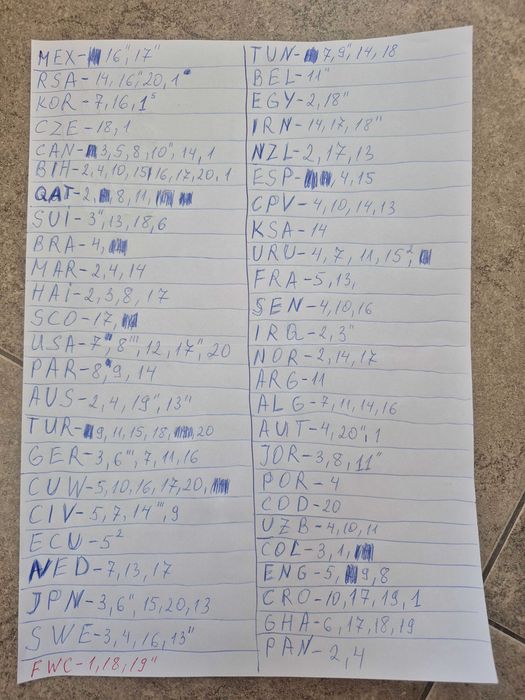 MEX-16",17"
RSA-14,16",20,1
KOR-7,16,1
CZE-18,1
CAN-3,5,8,10",14,1
BIH-2,4,10,15,16,17,20,1
QAT-2,8,11,
SUI-3",13,18,6
BRA-4,
MAR-2,4,14
HAI-2,3,8,17
SCO-17,
USA-7",8''',12,17",20
PAR-8,9,14
AUS-2,4,19",13"
TUR-9,11,15,18,20
GER-3,6''',7,11,16
CUW-5,10,16,17,20,
CIV-5,7,14''',9
ECU-5²
NED-7,13,17
JPN-3,6",15,20,13
SWE-3,4,16,13"
FWC-1,18,19"
TUN-7,9",14,18
BEL-11"
EGY-2,18"
IRN-14,17,18"
NZL-2,17,13
ESP-4,15
CPV-4,10,14,13
KSA-14
URU-4,7,11,15²,
FRA-5,13,
SEN-4,10,16
IRQ-2,3"
NOR-2,14,17
ARG-11
ALG-7,11,14,16
AUT-4,20",1
JOR-3,8,11"
POR-4
COD-20
UZB-4,10,11
COL-3,1,
ENG-5,9,8
CRO-10,17,19,1
GHA-6,17,18,19
PAN-2,4